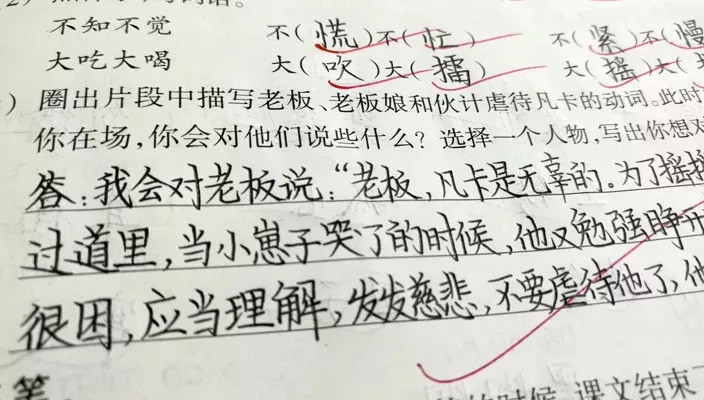 不知不觉 不(慌)不(忙) 不(紧)不(慢
大吃大喝 大(吹)大(擂) 大(摇)大(
)圈出片段中描写老板、老板娘和伙计虐待凡卡的动词。此时
你在场,你会对他们说些什么?选择一个人物,写出你想对
答:我会对老板说:“老板,凡卡是无辜的。为了摇摇
过道里,当小崽子哭了的时候,他又勉强睁开
很困,应当理解,发发慈悲,不要虐待他了,他
的时候,课文结束